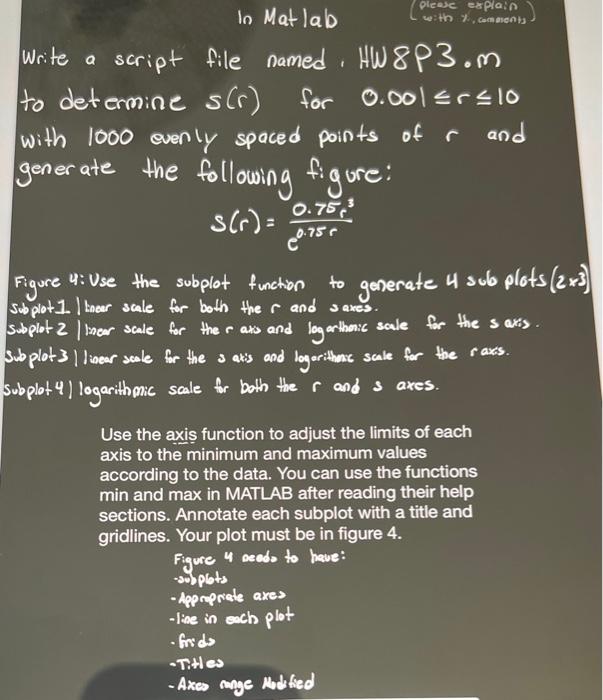 In Matlab
(please explain
with %, comments)
Write a script file named, HW8P3.m
to determine s(r) for 0.001≤r≤10
with 1000 evenly spaced points of r and
generate the following figure:
s(r) = 0.75r³ / e^0.75r
Figure 4: Use the subplot function to generate 4 sub plots (2x3)
Subplot 1 | linear scale for both the r and s axes.
Subplot 2 | linear scale for the r axis and logarithmic scale for the s axis.
Subplot 3 | linear scale for the s axis and logarithmic scale for the r axis.
Subplot 4) logarithmic scale for both the r and s axes.
Use the axis function to adjust the limits of each
axis to the minimum and maximum values
according to the data. You can use the functions
min and max in MATLAB after reading their help
sections. Annotate each subplot with a title and
gridlines. Your plot must be in figure 4.
Figure 4 needs to have:
-subplots
-Appropriate axes
-line in each plot
-Grids
-Titles
-Axes range Modified